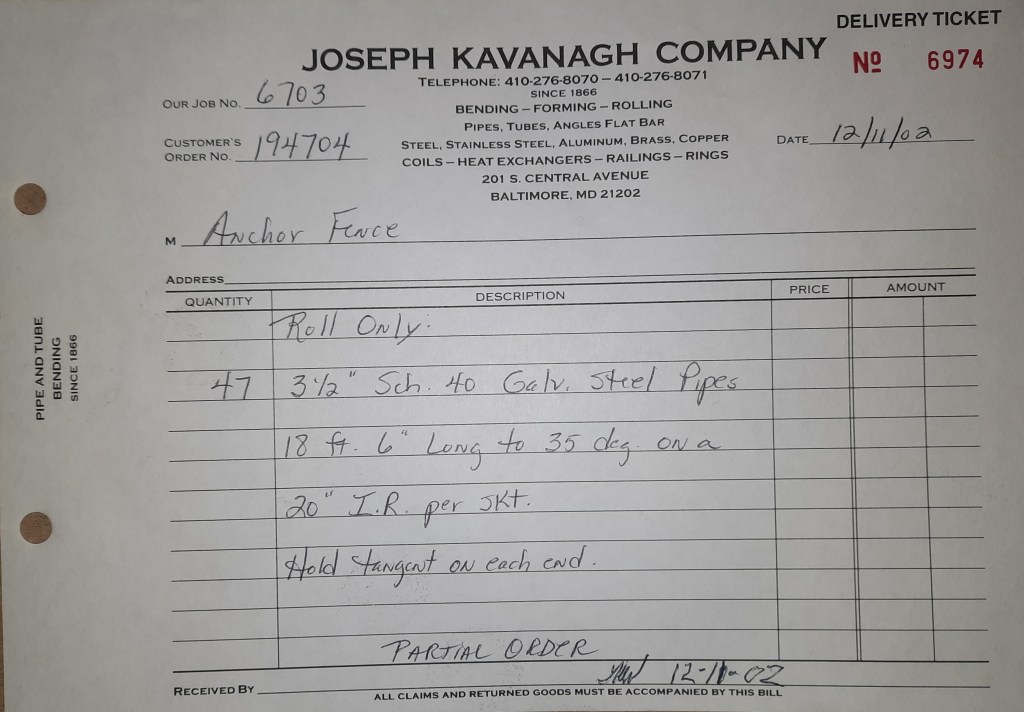 DELIVERY TICKET
JOSEPH KAVANAGH COMPANY
Nº 6974
TELEPHONE: 410-276-8070 – 410-276-8071
SINCE 1866
OUR JOB NO. 6703
BENDING – FORMING – ROLLING
PIPES, TUBES, ANGLES FLAT BAR
CUSTOMER'S
ORDER NO. 194704
STEEL, STAINLESS STEEL, ALUMINUM, BRASS, COPPER
DATE 12/11/02
COILS – HEAT EXCHANGERS – RAILINGS – RINGS
201 S. CENTRAL AVENUE
BALTIMORE, MD 21202
M Anchor Fence
ADDRESS
QUANTITY DESCRIPTION PRICE AMOUNT
Roll Only.
47 3 1/2" Sch. 40 Galv. Steel Pipes
18 ft. 6" Long to 35 deg. on a
20" I.R. per SKT.
Hold tangent on each end.
PARTIAL ORDER
12-11-02
RECEIVED BY
ALL CLAIMS AND RETURNED GOODS MUST BE ACCOMPANIED BY THIS BILL
PIPE AND TUBE
BENDING
SINCE 1866